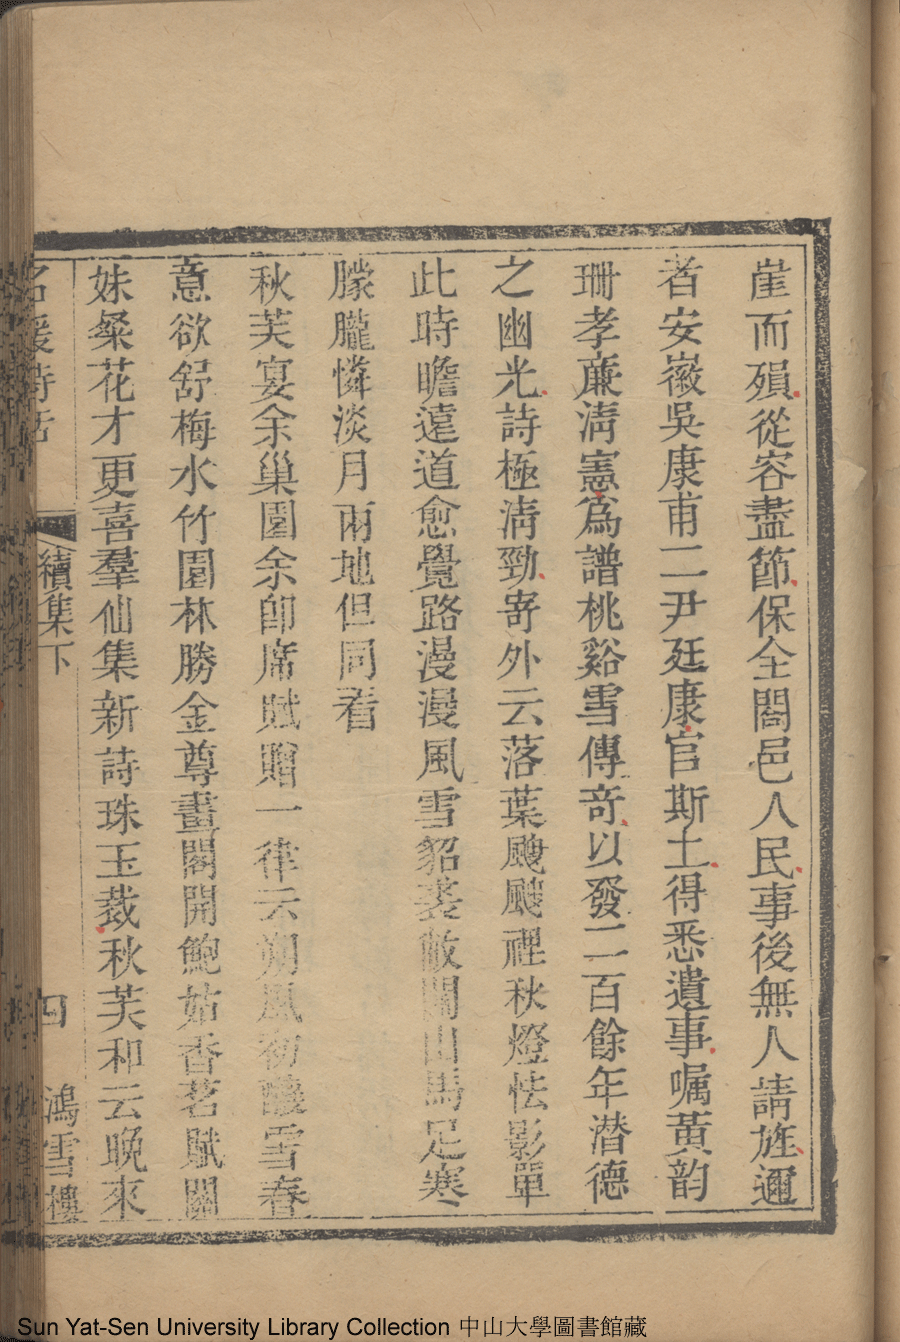 崖而殞從容盡節保全闔邑人民事後無人請旌邇
者安徽吳康甫二尹廷康官斯土得悉遺事囑黃韵
珊孝廉淸憲爲譜桃谿雪傳奇以發二百餘年潛德
之幽光詩極淸勁寄外云落葉颼颼裡秋燈怯影單
此時瞻遠道愈覺路漫漫風雪貂裘敝關山馬足寒
朦朧憐淡月兩地但同看
秋芙宴余巢園余卽席賦贈一律云朔風初釀雪春
意欲舒梅水竹園林勝金尊畫閣開鮑姑香茗賦關
妹粲花才更喜羣仙集新詩珠玉裁秋芙和云晚來
名媛詩話
續集下
四
鴻雪樓
Sun Yat-Sen University Library Collection 中山大學圖書館藏